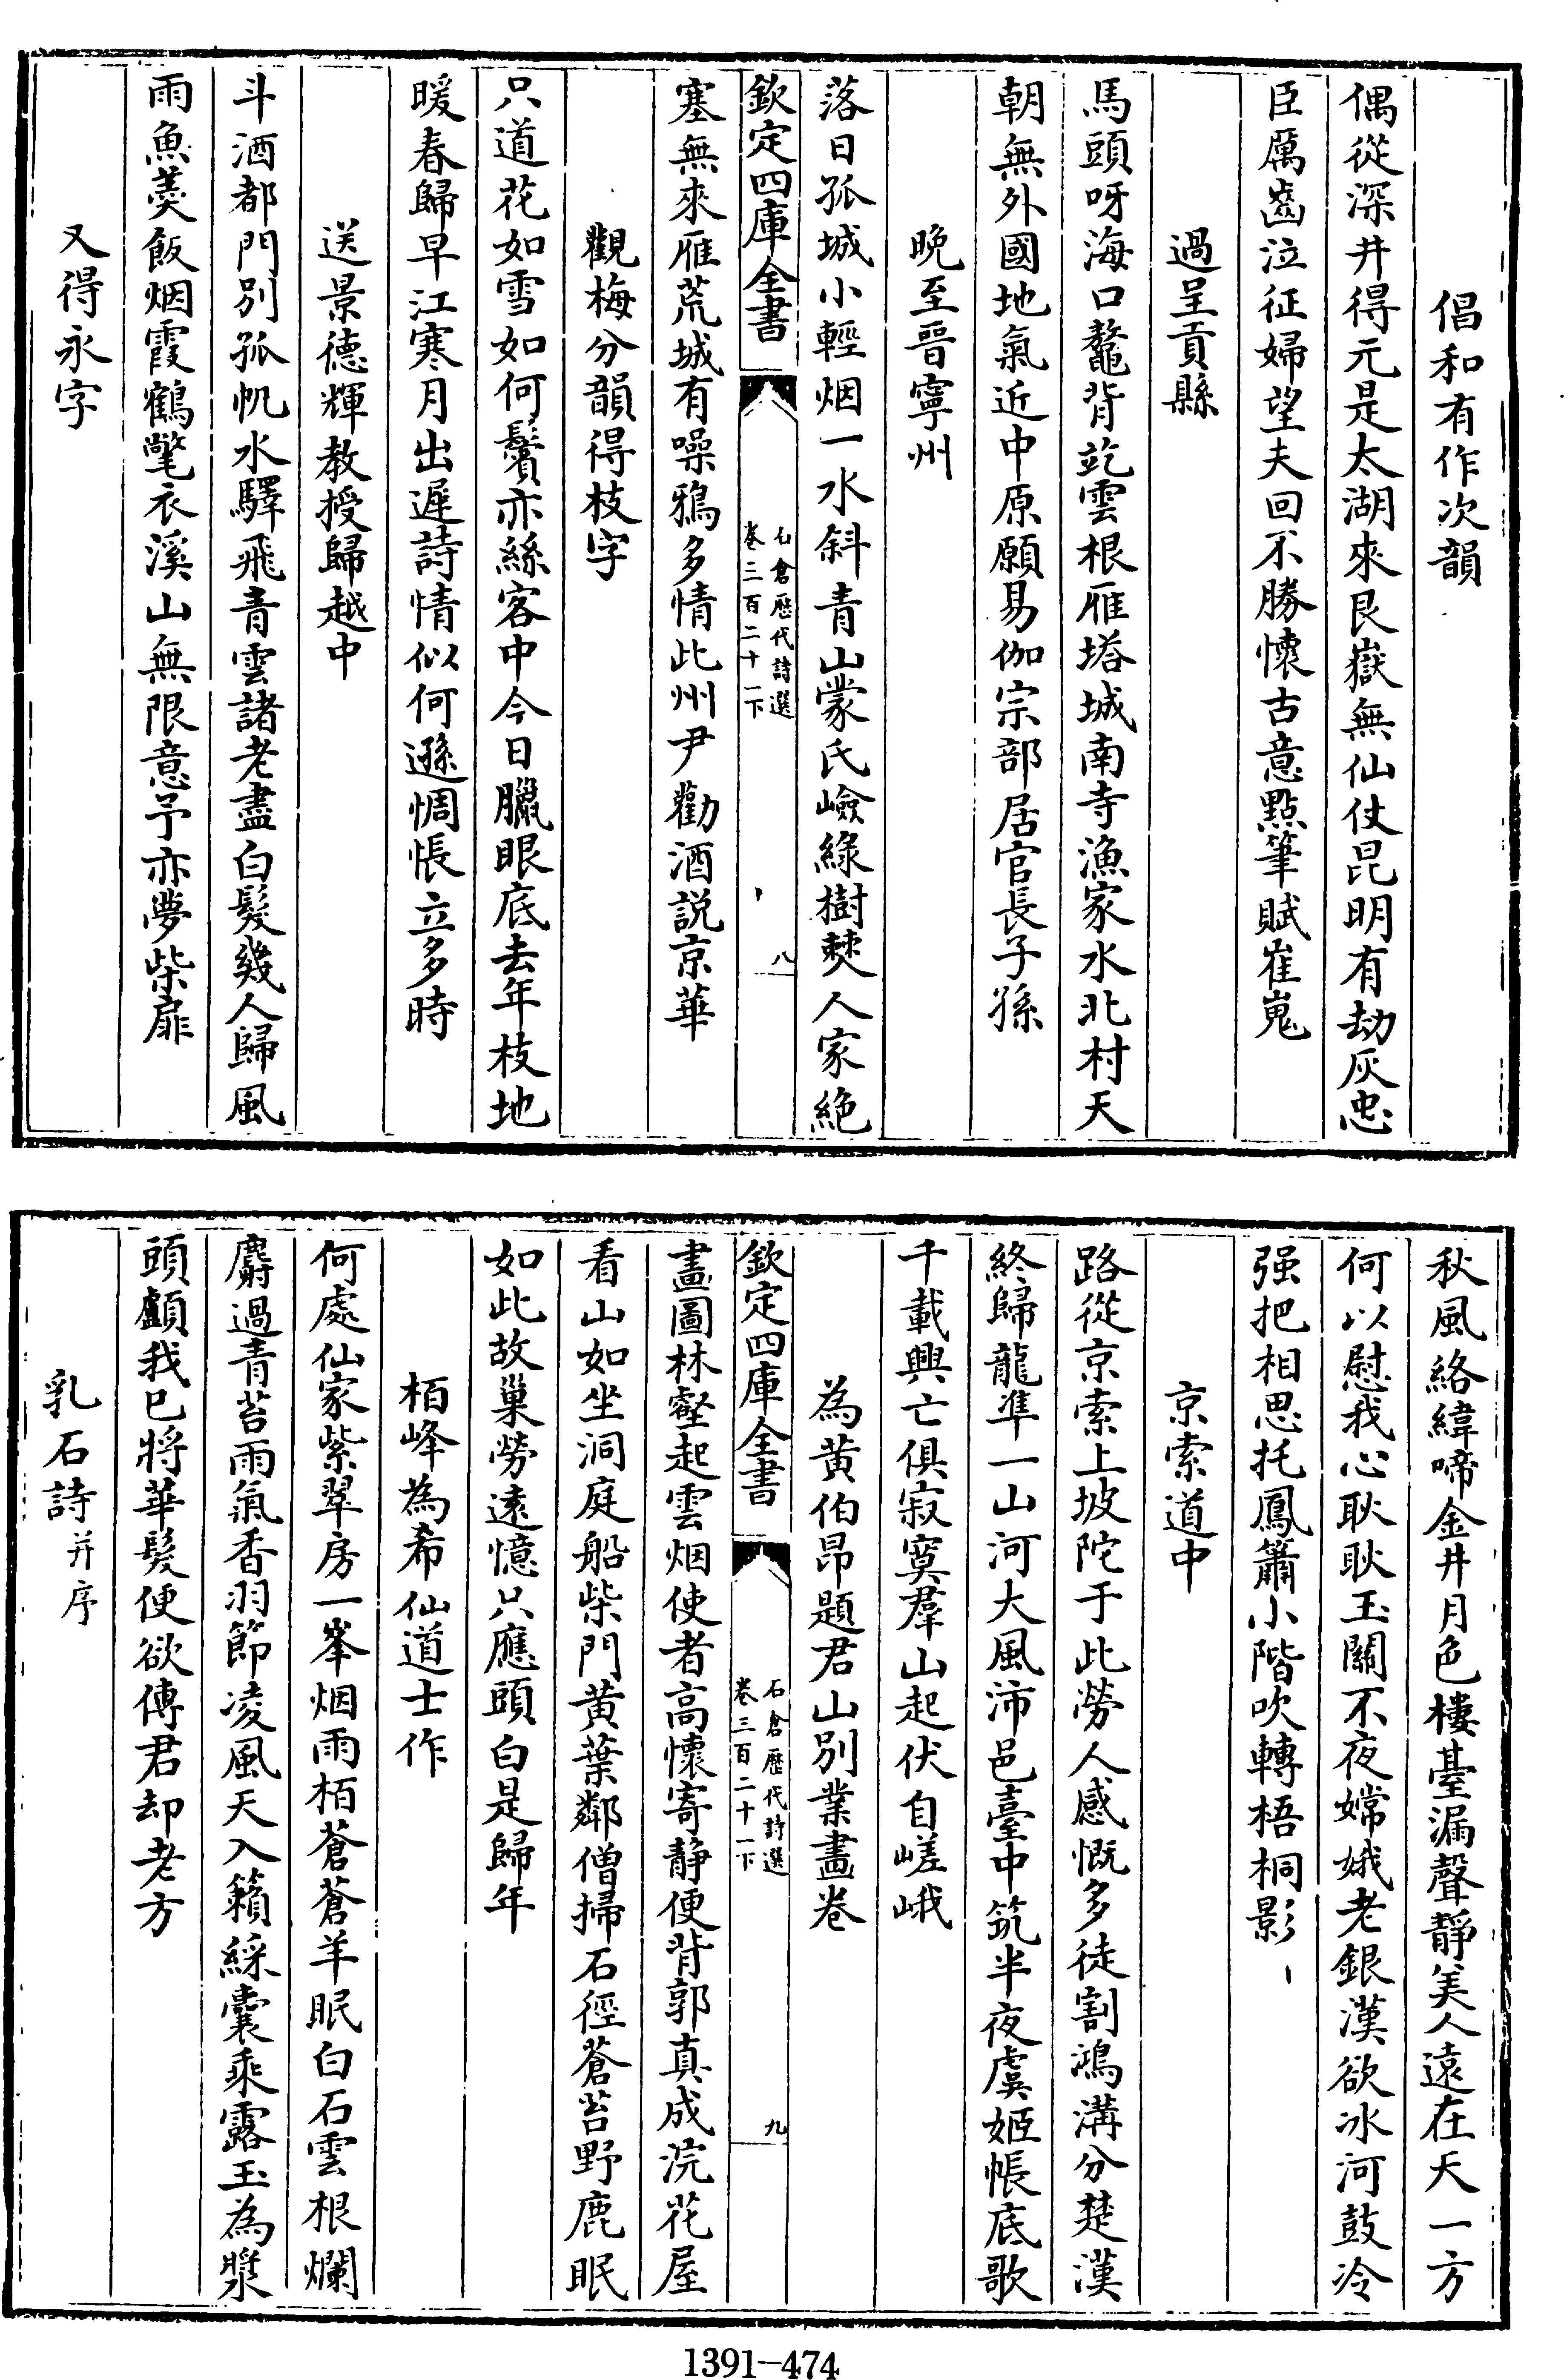 倡和有作次韻
偶從深井得元是太湖來艮嶽無仙仗昆明有劫灰忠
臣厲齒泣征婦望夫回不勝懷古意點筆賦崔嵬
過呈貢縣
馬頭呀海口鼇背訖雲根雁塔城南寺漁家水北村天
朝無外國地氣近中原願易伽宗部居官長子孫
晚至晉寧州
落日孤城小輕烟一水斜青山蒙氏嶮綠樹僰人家絶
欽定四庫全書
石倉歷代詩選
卷三百二十一下
八
塞無來雁荒城有噪鴉多情此州尹勸酒説京華
觀梅分韻得枝字
只道花如雪如何鬢亦絲客中今日臘眼底去年枝地
暖春歸早江寒月出遲詩情似何遜惆悵立多時
送景德輝教授歸越中
斗酒都門別孤帆水驛飛青雲諸老盡白髮幾人歸風
雨魚羮飯烟霞鶴氅衣溪山無限意予亦夢柴扉
又得永字
秋風絡緯啼金井月色樓臺漏聲靜美人遠在天一方
何以慰我心耿耿玉關不夜嫦娥老銀漢欲冰河鼓冷
强把相思托鳳簫小階吹轉梧桐影
京索道中
路從京索上坡陀于此勞人感慨多徒割鴻溝分楚漢
終歸龍凖一山河大風沛邑臺中筑半夜虞姬帳底歌
千載興亡俱寂寞羣山起伏自嵯峨
為黄伯昂題君山別業畫卷
欽定四庫全書
石倉歷代詩選
卷三百二十一下
九
畫圖林壑起雲烟使者高懷寄静便背郭真成浣花屋
看山如坐洞庭船柴門黄葉鄰僧掃石徑蒼苔野鹿眠
如此故巢勞遠憶只應頭白是歸年
栢峰為希仙道士作
何處仙家紫翠房一峯烟雨栢蒼蒼羊眠白石雲根爛
麝過青苔雨氣香羽節凌風天入籟綵囊乘露玉為漿
頭顱我已將華髮便欲傳君却老方
乳石詩并序
1391-474